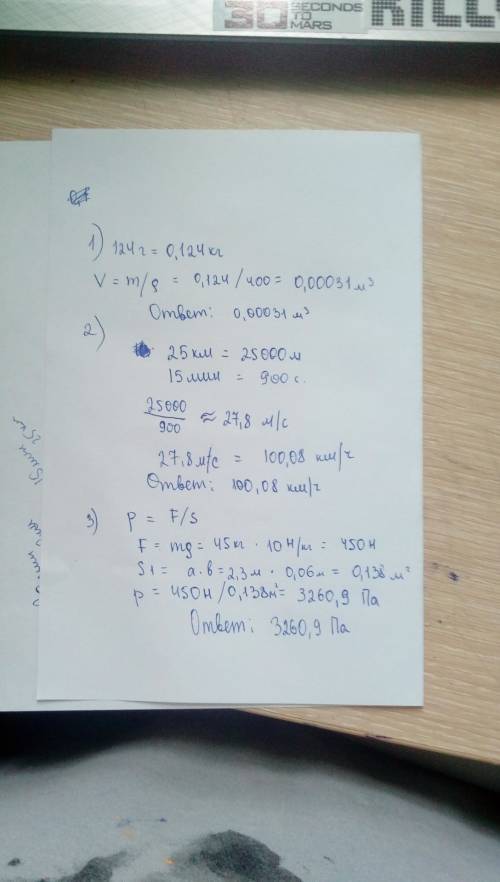 30 SECONDS TO MARS
1) 124 г = 0,124 кг
V = m/ρ = 0,124 / 400 = 0,00031 м³
Ответ: 0,00031 м³
2)
25 км = 25000 м
15 мин = 900 с.
25000
900
≈ 27,8 м/с
27,8 м/с = 100,08 км/ч
Ответ: 100,08 км/ч
3) p = F/S
F = mg = 45 кг · 10 Н/кг = 450 Н
S1 = a·b = 2,3 м · 0,06 м = 0,138 м²
p = 450 Н / 0,138 м² = 3260,9 Па
Ответ: 3260,9 Па